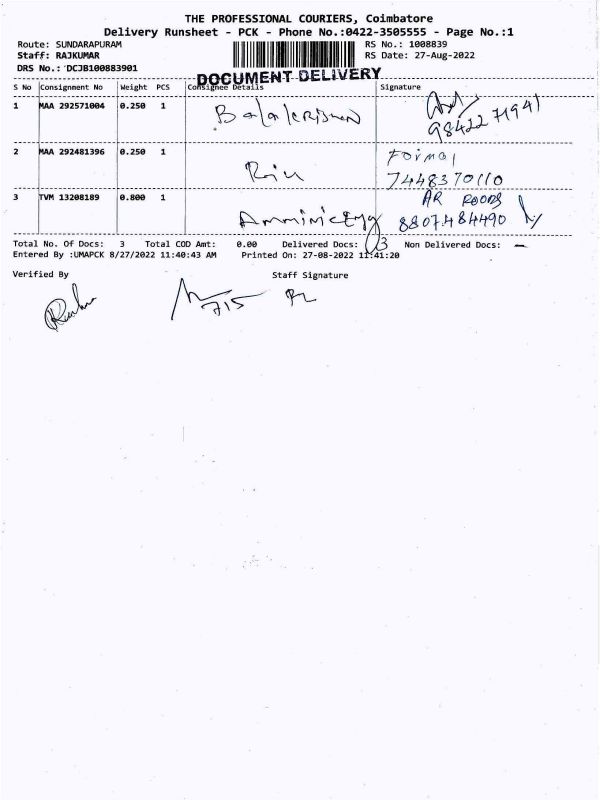 THE PROFESSIONAL COURIERS, Coimbatore
Delivery Runsheet - PCK - Phone No.:0422-3505555 - Page No.:1
Route: SUNDARAPURAM RS No.: 1008839
Staff: RAJKUMAR RS Date: 27-Aug-2022
DRS No.: DCJB100883901
DOCUMENT DELIVERY
S No Consignment No Weight PCS Consignee Details Signature
1 MAA 292571004 0.250 1
98422 71941
2 MAA 292481396 0.250 1
7448370110
3 TVM 13208189 0.800 1 AR
8807484490
Total No. Of Docs: 3 Total COD Amt: 0.00 Delivered Docs: 3 Non Delivered Docs: -
Entered By :UMAPCK 8/27/2022 11:40:43 AM Printed On: 27-08-2022 11:41:20
Verified By Staff Signature
715